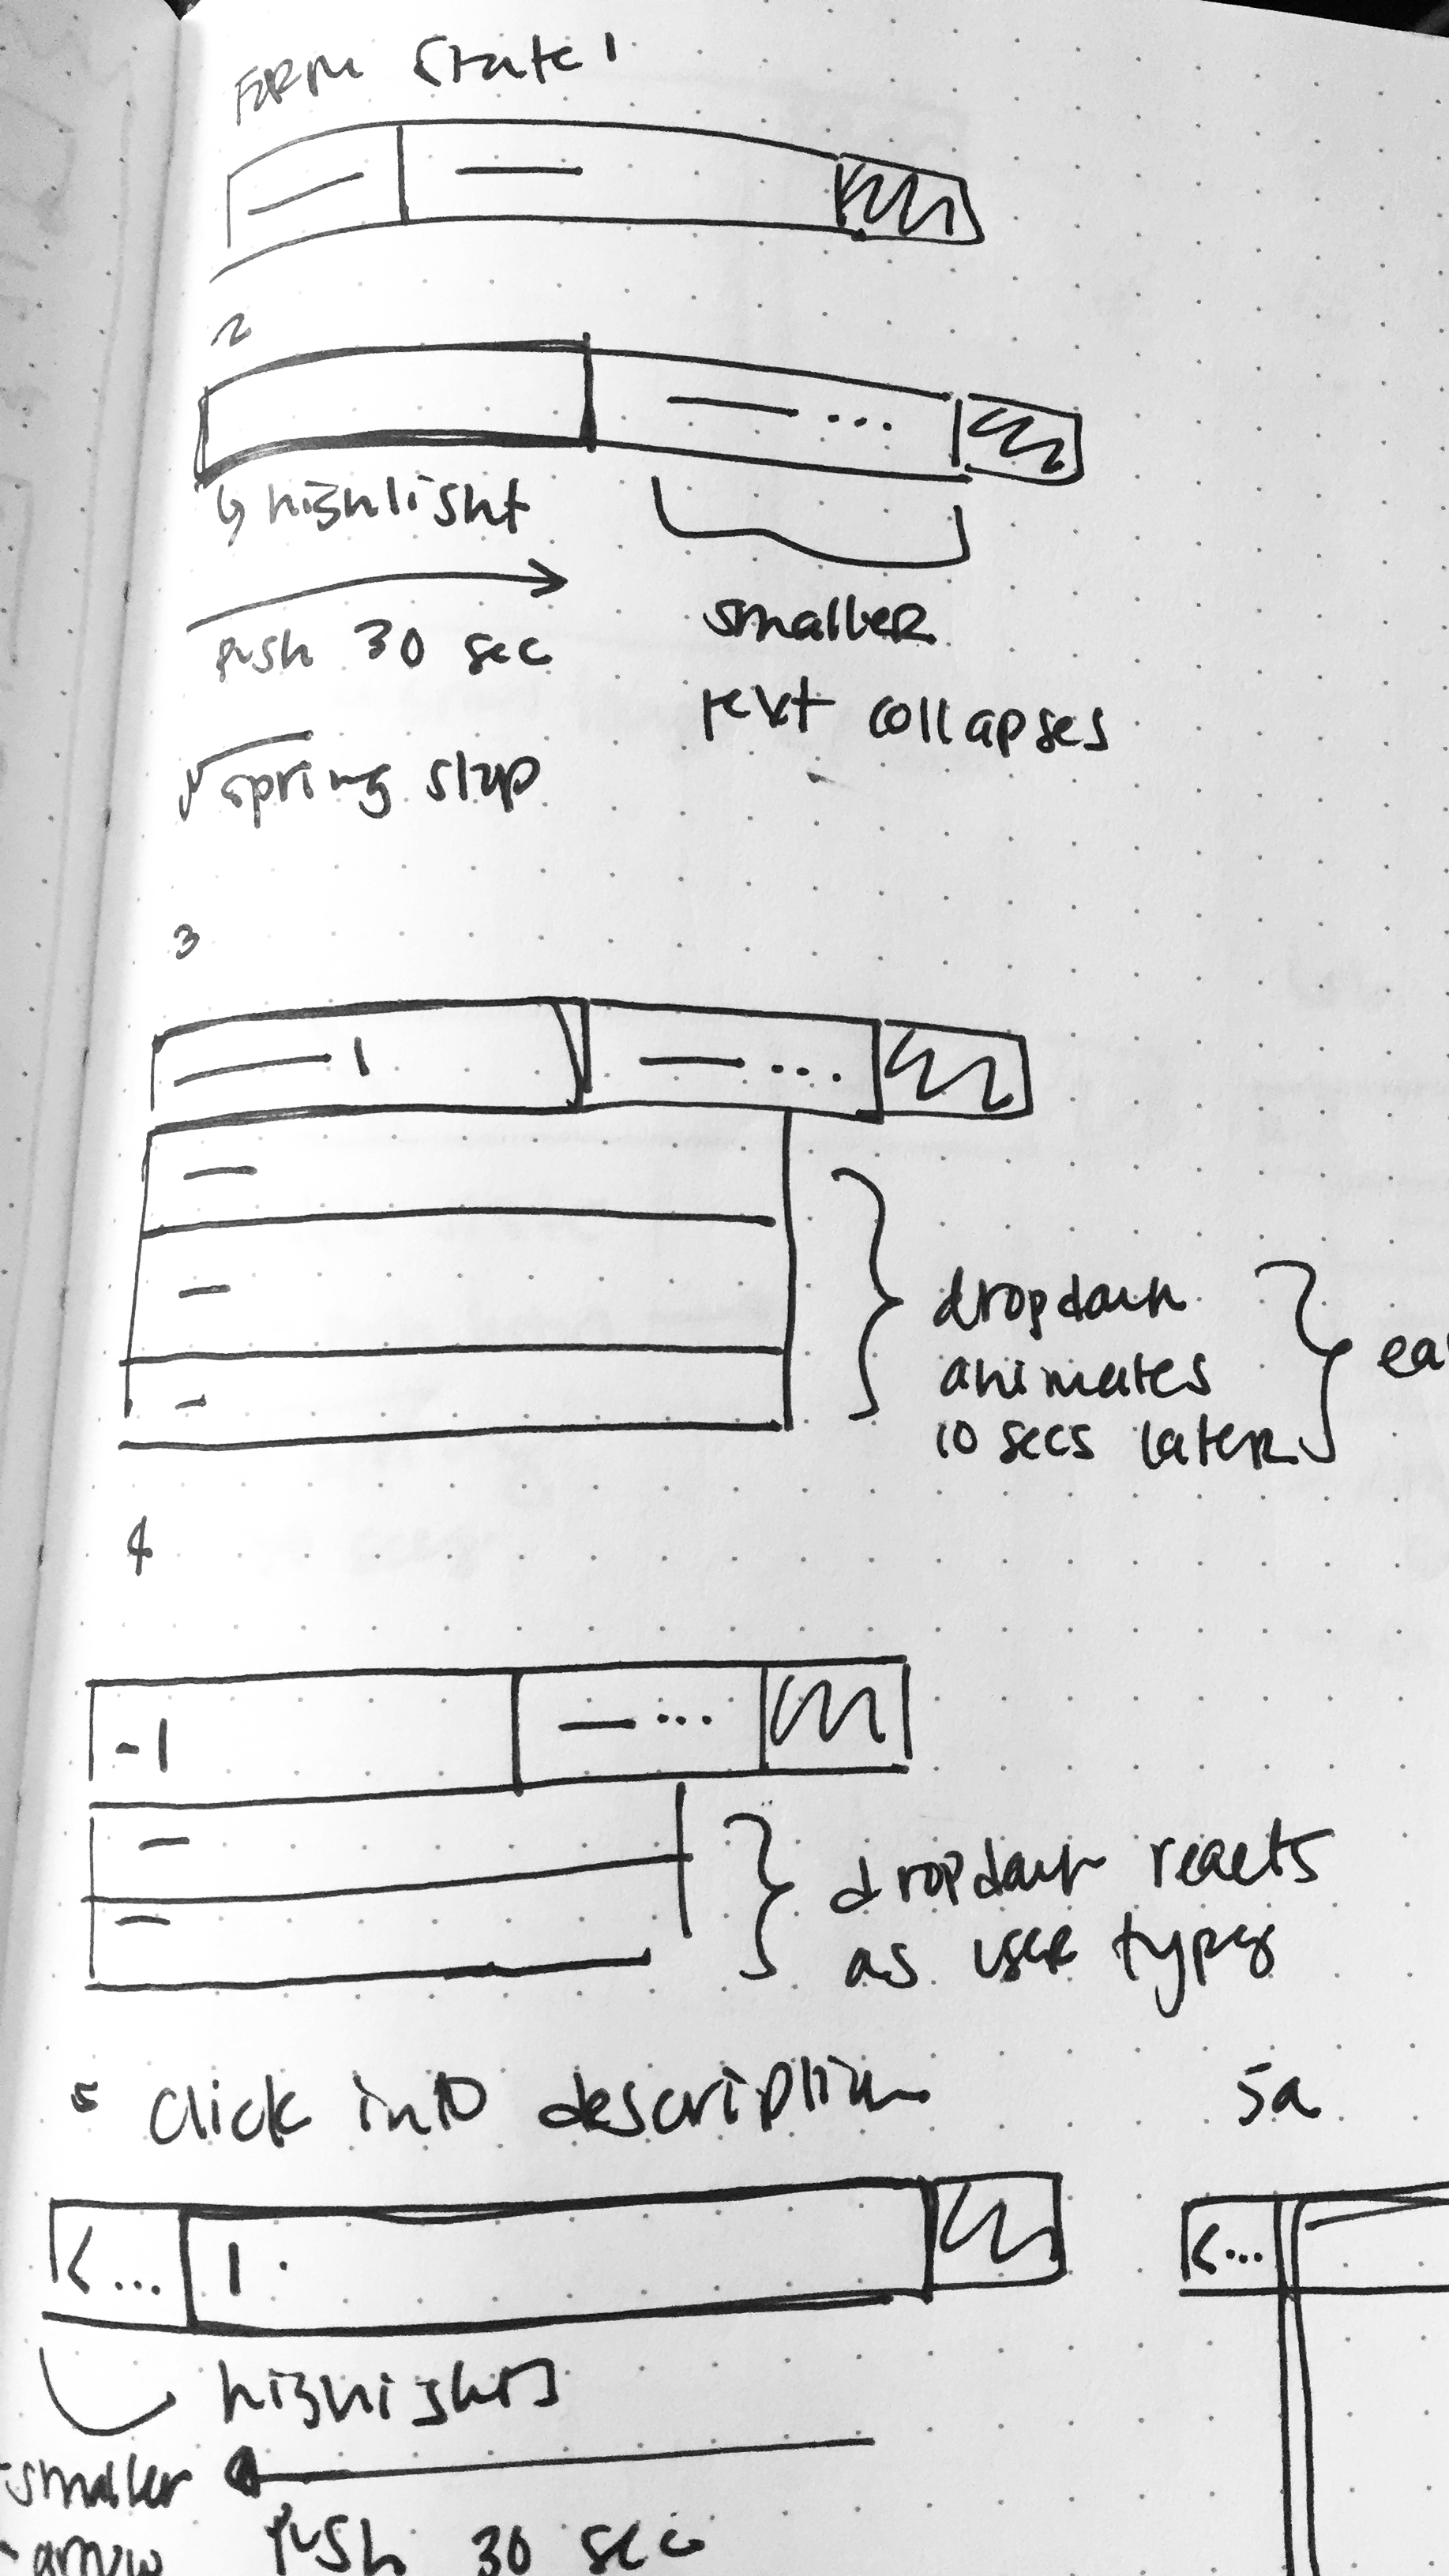 FORM State 1
2
highlight
push 30 sec
smaller
text collapses
spring stop
3
dropdown
animates
10 secs later
ea
4
dropdown reacts
as user types
5 click into description
5a
<...
<...
highlights
smaller
arrow
push 30 sec